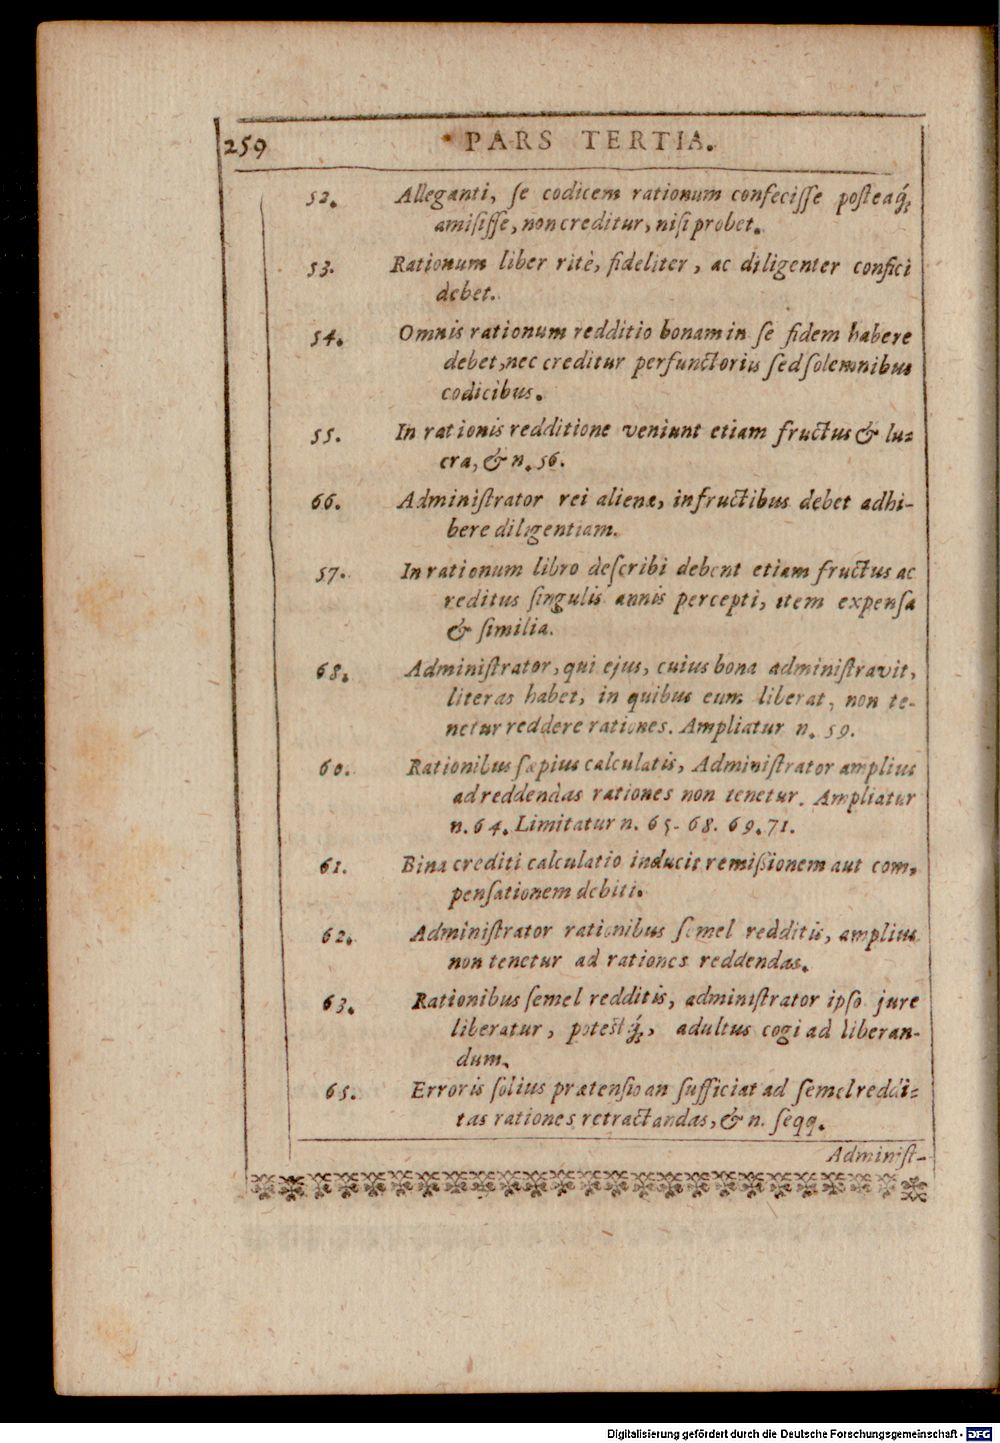 259 PARS TERTIA.
52. Alleganti, ſe codicem rationum confeciſſe poſteaq́;
amiſiſſe, non creditur, niſi probet.
53. Rationum liber ritè, fideliter, ac diligenter confici
debet.
54. Omnis rationum redditio bonam in ſe fidem habere
debet, nec creditur perfunctoriis ſed ſolemnibus
codicibus.
55. In rationis redditione veniunt etiam fructus & lu-
cra, & n. 56.
66. Adminiſtrator rei alienæ, in fructibus debet adhi-
bere diligentiam.
57. In rationum libro deſcribi debent etiam fructus ac
reditus ſingulis annis percepti, item expenſa
& ſimilia.
68. Adminiſtrator, qui ejus, cuius bona adminiſtravit,
literas habet, in quibus eum liberat, non te-
netur reddere rationes. Ampliatur n. 59.
60. Rationibus ſæpius calculatis, Adminiſtrator amplius
ad reddendas rationes non tenetur. Ampliatur
n. 64. Limitatur n. 65. 68. 69. 71.
61. Bina crediti calculatio inducit remiſsionem aut com-
penſationem debiti.
62. Adminiſtrator rationibus ſemel redditis, amplius
non tenetur ad rationes reddendas.
63. Rationibus ſemel redditis, adminiſtrator ipſo jure
liberatur, poteſtq́;, adultus cogi ad liberan-
dum.
65. Erroris ſolius prætenſio an ſufficiat ad ſemel reddi-
tas rationes retractandas, & n. ſeqq.
Adminiſt-
Digitalisierung gefördert durch die Deutsche Forschungsgemeinschaft - DFG